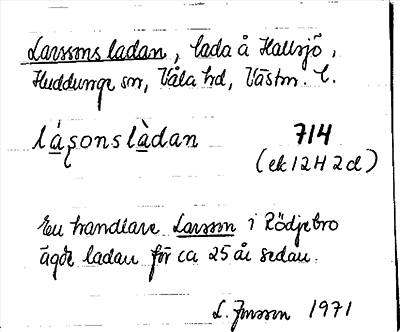 Larssons ladan, lada å Hallsjö,
Huddunge sn, Våla hd, Västm. l.
lásonslàdan 714
(ek 12 H 2 d)
En handlare Larsson i Rödjebro
ägde ladan för ca 25 år sedan.
L. Jonsson 1971